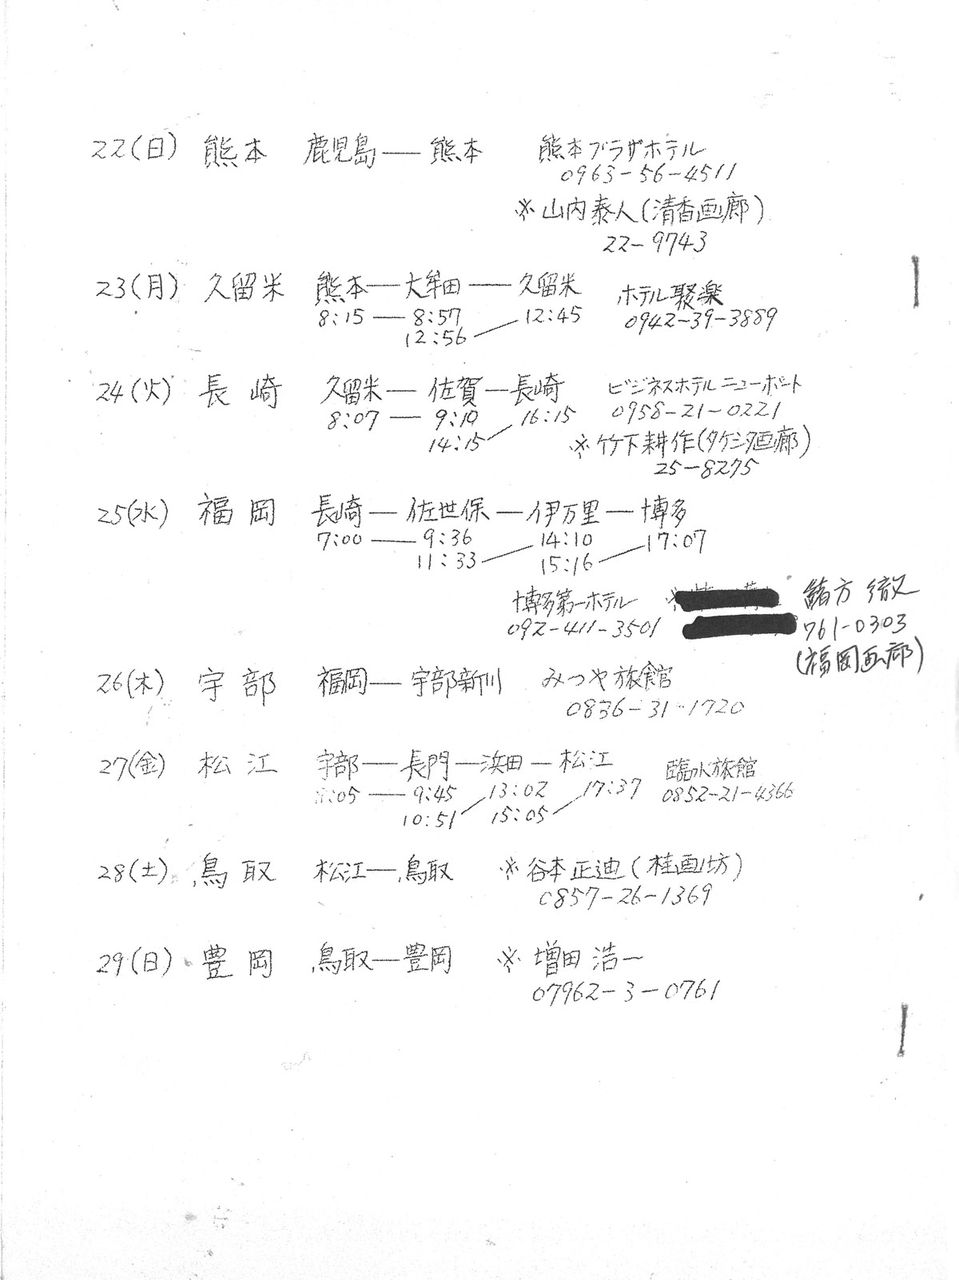 22(日) 熊本 鹿児島―熊本 熊本プラザホテル
0963-56-4511
※山内泰人(清香画廊)
22-9743
23(月) 久留米 熊本―大牟田―久留米 ホテル聚楽
8:15―8:57 12:45 0942-39-3889
12:56
24(火) 長崎 久留米―佐賀―長崎 ビジネスホテルニューポート
8:07―9:10 16:15 0958-21-0221
14:15 ※竹下耕作(タケシタ画廊)
25-8275
25(水) 福岡 長崎―佐世保―伊万里―博多
7:00―9:36 14:10 17:07
11:33 15:16
博多第一ホテル ※ 緒方 徹
092-411-3501 761-0303
(福岡画廊)
26(木) 宇部 福岡―宇部新川 みつや旅館
0836-31-1720
27(金) 松江 宇部―長門―浜田―松江 臨水旅館
:05―9:45 13:02 17:37 0852-21-4366
10:51 15:05
28(土) 鳥取 松江―鳥取 ※谷本正迪(桂画坊)
0857-26-1369
29(日) 豊岡 鳥取―豊岡 ※増田浩一
07962-3-0761